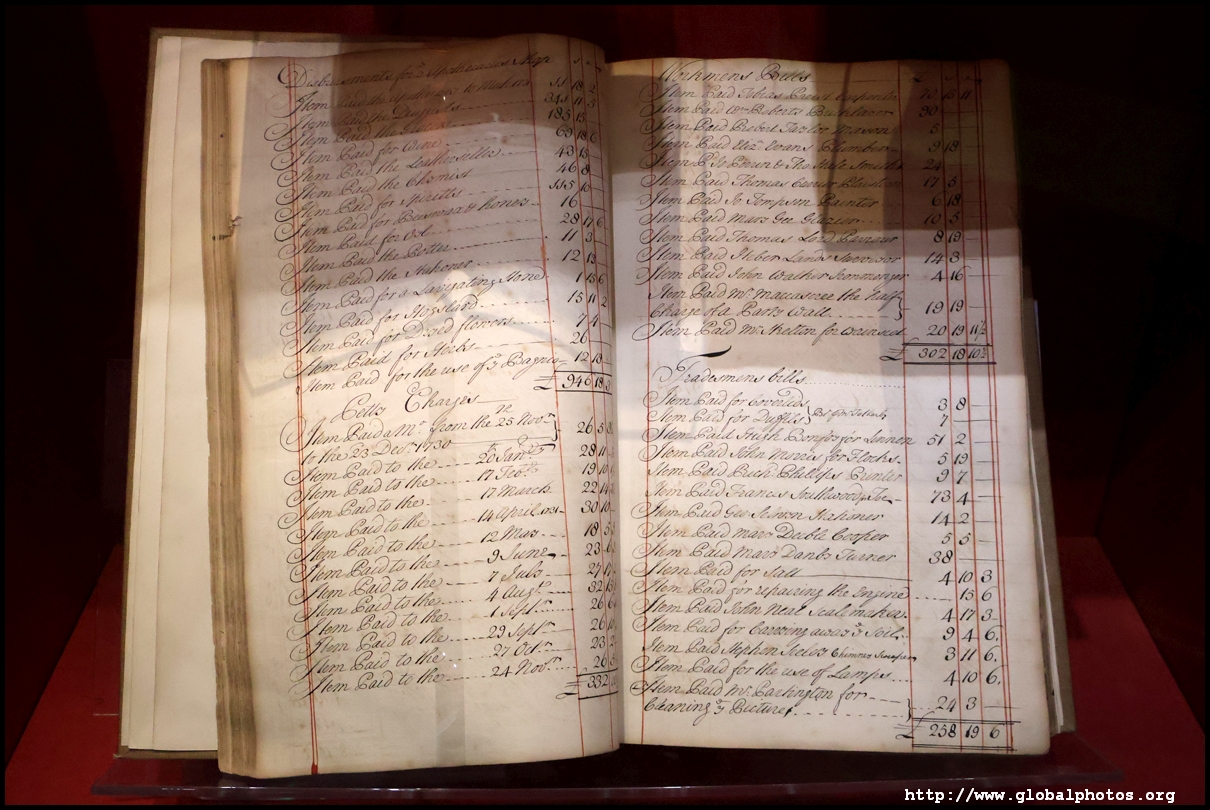 Disbursements for ye Apothecarys Shop
Item Paid the 18 2
Item Paid the Druggists 343 11 3
Item Paid the 185 13
Item Paid for Wine 69 18 6
Item Paid the Distiller 43 13
Item Paid the Chymist 46 8
Item Paid for Spiritts 10
Item Paid for Beeswax & honey 16
Item Paid for Oyl 28 17 6
Item Paid the Potter 11 3
Item Paid the 12 13
Item Paid for a Levigating Stone 1 13 6
Item Paid for Hogslard 15 11 2
Item Paid for Dryed flowers 7 4
Item Paid for Herbs 26
Item Paid for the use of ye Bagnio 12 18
£ 940 18 3
Petty Charges
Item Paid a Mr from the 25 Novr
to the 23 Decr 1730 26 5
Item Paid to the 20 Janry 28 11
Item Paid to the 17 Febry 19 10
Item Paid to the 17 March 22 14
Item Paid to the 14 April 1731 30 10
Item Paid to the 12 May 18 5
Item Paid to the 9 June 23
Item Paid to the 7 July 27
Item Paid to the 4 Augt 32
Item Paid to the 1 Septr 26
Item Paid to the 29 Septr 26
Item Paid to the 27 Octr 23
Item Paid to the 24 Novr 26
£ 332
Workmens Bills
Item Paid Tobias Carpenter 11
Item Paid Wm Roberts Bricklayer 30
Item Paid Robert Taylor Mason
Item Paid Eliz Evans Plumber 9 18
Item Pd Jo Brown & Tho Smiths 24
Item Paid Thomas Plaisterer 17 3
Item Paid Jo Simpson Painter 6 18
Item Paid Mary Gee Glazier 10 5
Item Paid Thomas Lord Paviour 8 19
Item Paid Heber Lands Surveyor 14 3
Item Paid John Walker Ironmonger 4 16
Item Paid Mr the half
Charge of a Party Wall 19 19
Item Paid Mr Skelton for 20 19 11½
£ 302 18 10½
Tradesmens bills
Item Paid for Coverlids 3 8
Item Paid for Duffils 7
Item Paid Hugh for Linnen 51 2
Item Paid John for Flocks 5 19
Item Paid Phillips Turner 9 7
Item Paid Francis Southwood 73 4
Item Paid Geo Stationer 14 2
Item Paid Mary Cooper 5 5
Item Paid Mary Danby Turner 38
Item Paid for Salt 4 10 3
Item Paid for repairing the Engine 15 6
Item Paid John Neal Scalemaker 4 17 3
Item Paid for Carrying away ye Soil 9 4 6
Item Paid Stephen Chimney Sweeper 3 11 6
Item Paid for the use of Lamps 4 10 6
Item Paid Mr Partington for
Cleaning ye Pictures 24 3
£ 258 19 6
http://www.globalphotos.org